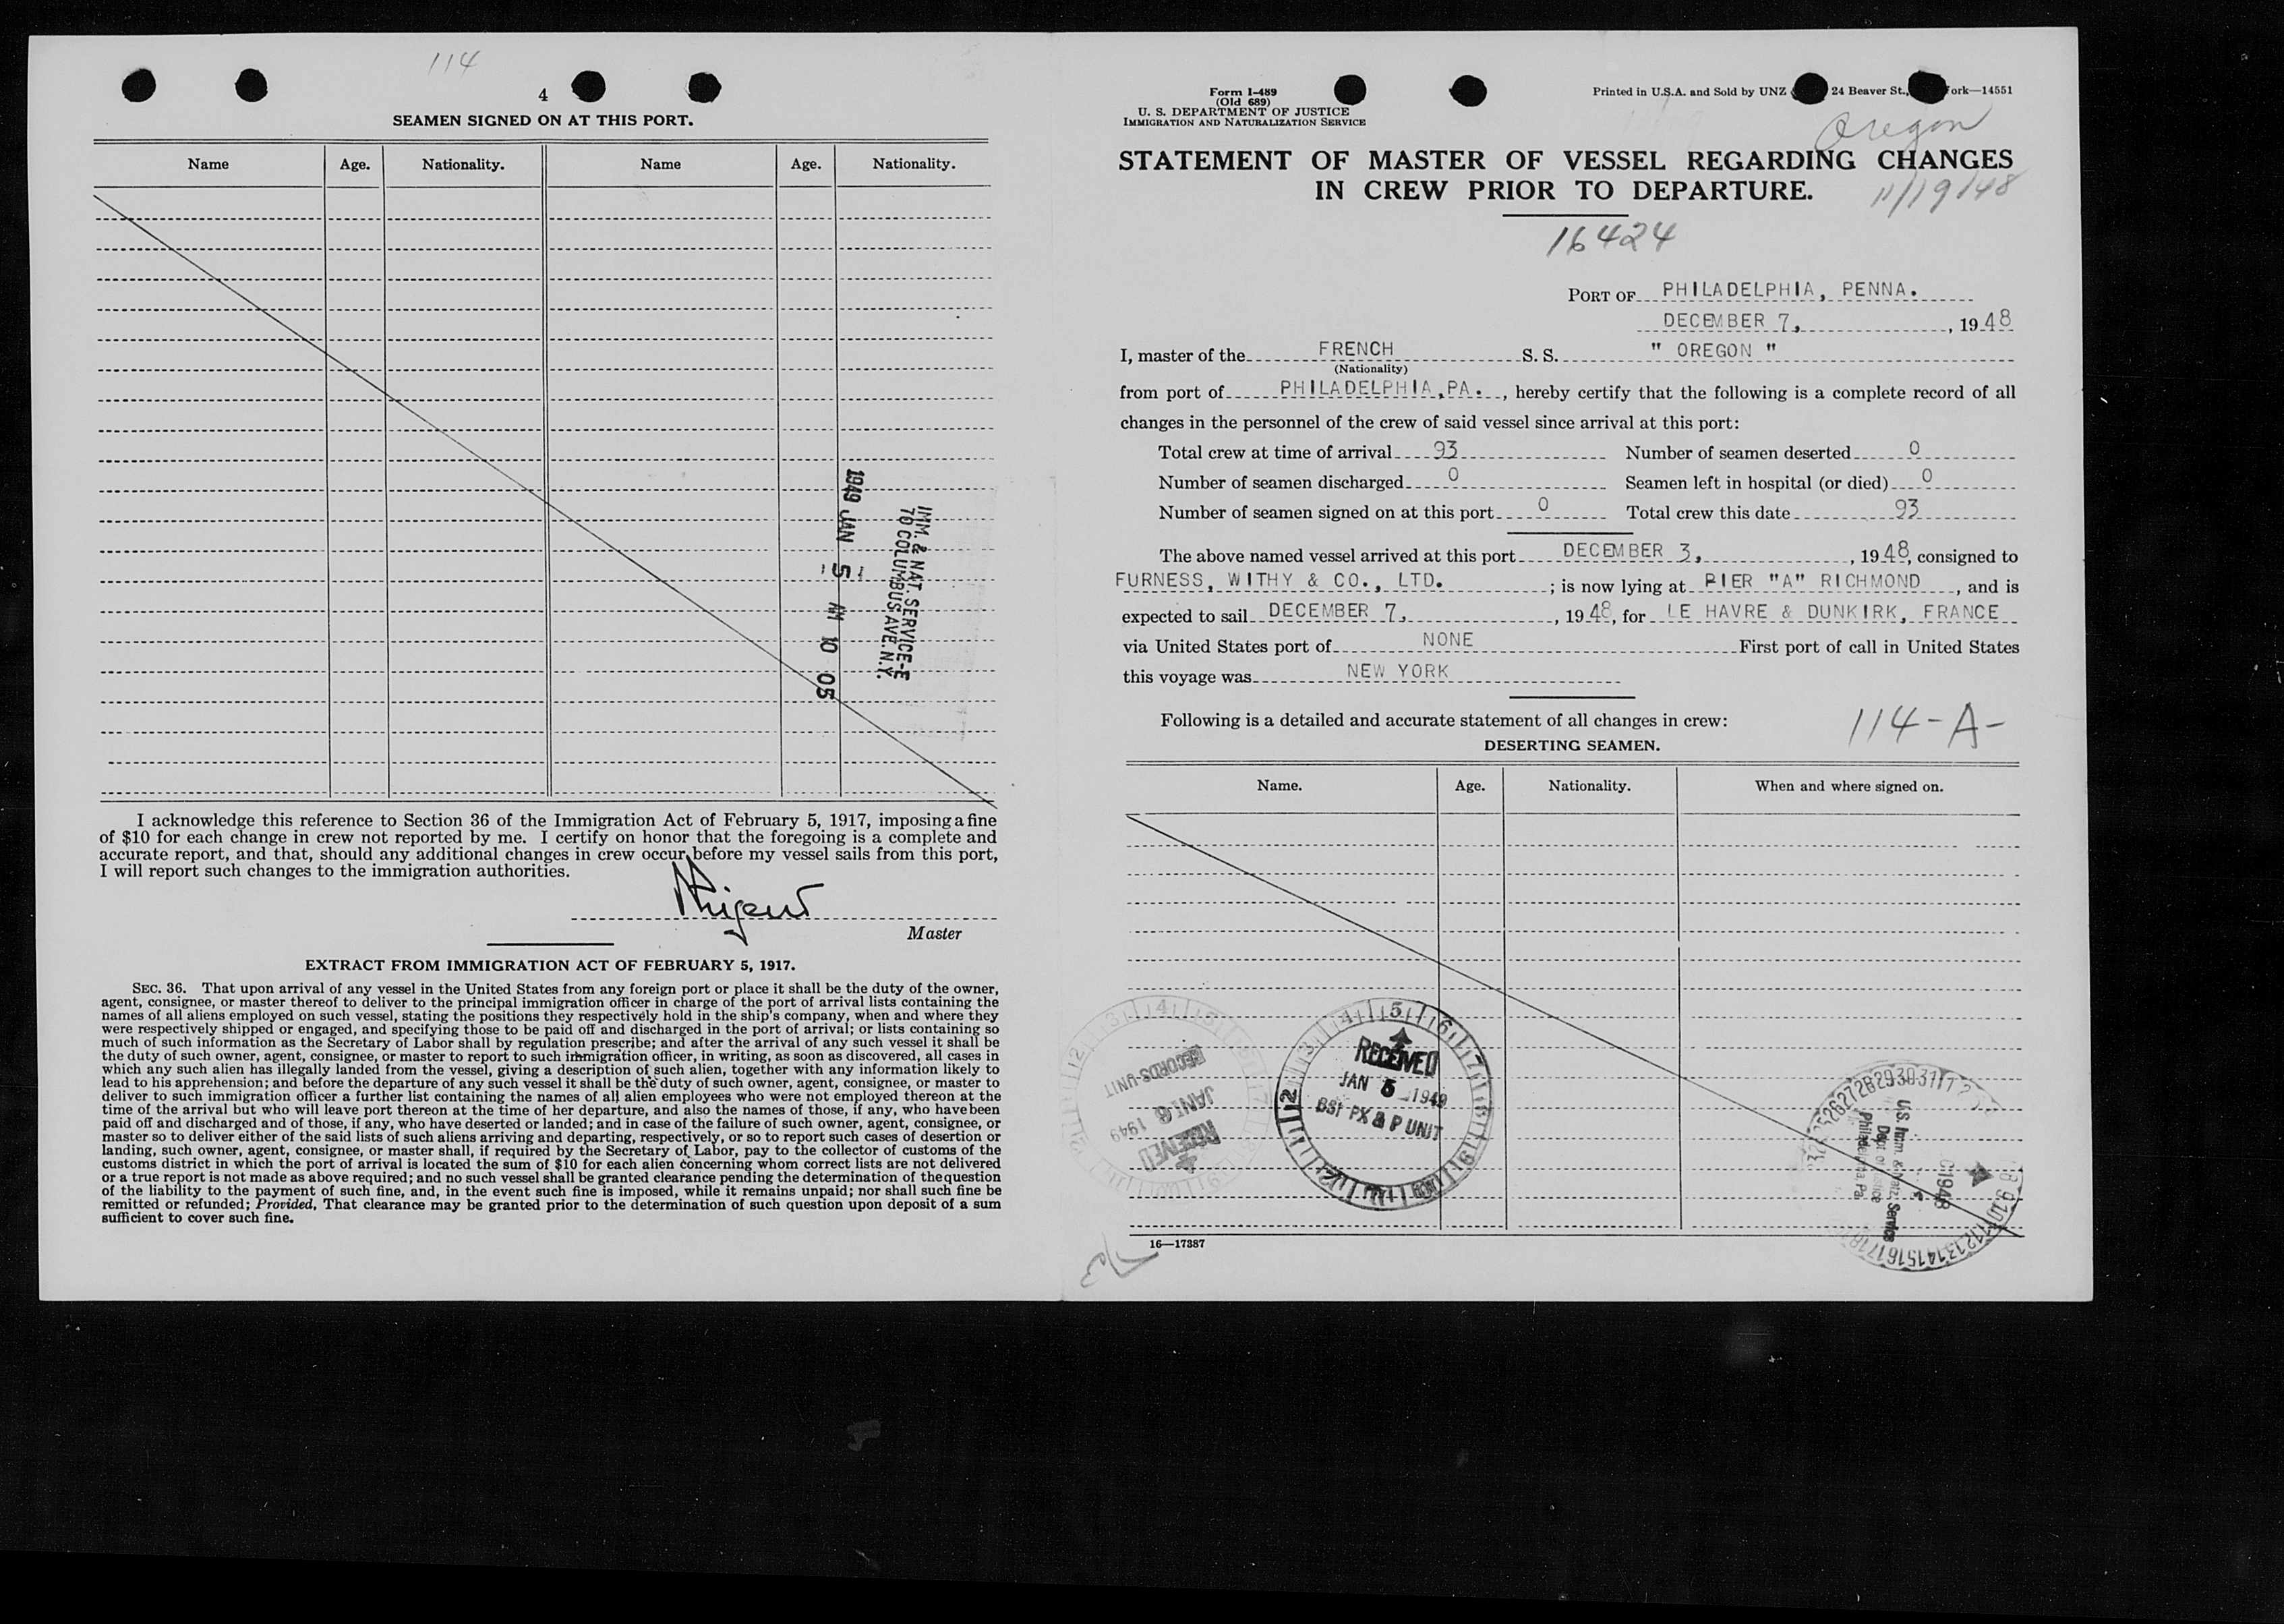 114
4
SEAMEN SIGNED ON AT THIS PORT.
Name Age. Nationality. Name Age. Nationality.
IMM. & NAT. SERVICE-E
70 COLUMBUS AVE. N.Y.
1949 JAN 5 AM 10 05
I acknowledge this reference to Section 36 of the Immigration Act of February 5, 1917, imposing a fine
of $10 for each change in crew not reported by me. I certify on honor that the foregoing is a complete and
accurate report, and that, should any additional changes in crew occur before my vessel sails from this port,
I will report such changes to the immigration authorities.
Master
EXTRACT FROM IMMIGRATION ACT OF FEBRUARY 5, 1917.
SEC. 36. That upon arrival of any vessel in the United States from any foreign port or place it shall be the duty of the owner,
agent, consignee, or master thereof to deliver to the principal immigration officer in charge of the port of arrival lists containing the
names of all aliens employed on such vessel, stating the positions they respectively hold in the ship's company, when and where they
were respectively shipped or engaged, and specifying those to be paid off and discharged in the port of arrival; or lists containing so
much of such information as the Secretary of Labor shall by regulation prescribe; and after the arrival of any such vessel it shall be
the duty of such owner, agent, consignee, or master to report to such immigration officer, in writing, as soon as discovered, all cases in
which any such alien has illegally landed from the vessel, giving a description of such alien, together with any information likely to
lead to his apprehension; and before the departure of any such vessel it shall be the duty of such owner, agent, consignee, or master to
deliver to such immigration officer a further list containing the names of all alien employees who were not employed thereon at the
time of the arrival but who will leave port thereon at the time of her departure, and also the names of those, if any, who have been
paid off and discharged and of those, if any, who have deserted or landed; and in case of the failure of such owner, agent, consignee, or
master so to deliver either of the said lists of such aliens arriving and departing, respectively, or so to report such cases of desertion or
landing, such owner, agent, consignee, or master shall, if required by the Secretary of Labor, pay to the collector of customs of the
customs district in which the port of arrival is located the sum of $10 for each alien concerning whom correct lists are not delivered
or a true report is not made as above required; and no such vessel shall be granted clearance pending the determination of the question
of the liability to the payment of such fine, and, in the event such fine is imposed, while it remains unpaid; nor shall such fine be
remitted or refunded; Provided, That clearance may be granted prior to the determination of such question upon deposit of a sum
sufficient to cover such fine.
Form I-489
(Old 689)
U. S. DEPARTMENT OF JUSTICE
IMMIGRATION AND NATURALIZATION SERVICE
Printed in U.S.A. and Sold by UNZ 24 Beaver St., ork—14551
Oregon
STATEMENT OF MASTER OF VESSEL REGARDING CHANGES
IN CREW PRIOR TO DEPARTURE.
11/19/48
16424
PORT OF PHILADELPHIA, PENNA.
DECEMBER 7, , 1948
I, master of the FRENCH S. S. " OREGON "
(Nationality)
from port of PHILADELPHIA,PA. , hereby certify that the following is a complete record of all
changes in the personnel of the crew of said vessel since arrival at this port:
Total crew at time of arrival 93 Number of seamen deserted 0
Number of seamen discharged 0 Seamen left in hospital (or died) 0
Number of seamen signed on at this port 0 Total crew this date 93
The above named vessel arrived at this port DECEMBER 3, , 1948, consigned to
FURNESS, WITHY & CO., LTD. ; is now lying at PIER "A" RICHMOND , and is
expected to sail DECEMBER 7, , 1948, for LE HAVRE & DUNKIRK, FRANCE
via United States port of NONE First port of call in United States
this voyage was NEW YORK
Following is a detailed and accurate statement of all changes in crew:
114-A-
DESERTING SEAMEN.
Name. Age. Nationality. When and where signed on.
RECEIVED
JAN 5 1949
BSI PX & P UNIT
RECEIVED
JAN 6 1949
RECORDS UNIT
U.S. Imm. & Natz. Service
Dept. of Justice
Philadelphia, Pa.
16—17387